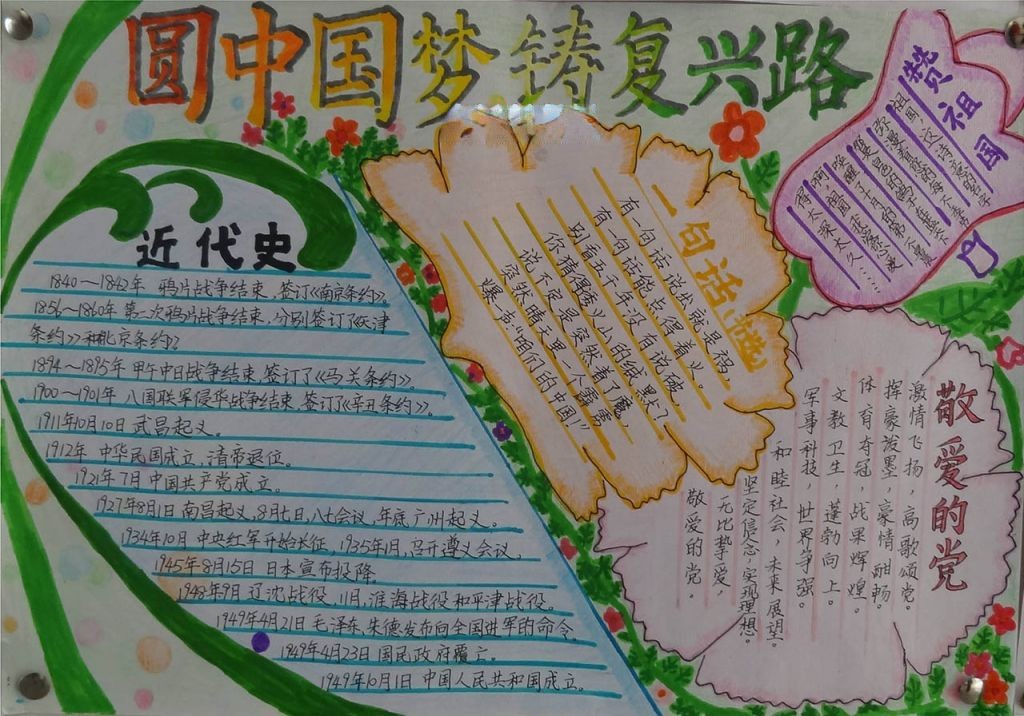 圆中国梦铸复兴路
近代史
1840～1842年 鸦片战争结束，签订《南京条约》。
1856～1860年 第二次鸦片战争结束，分别签订了《天津
条约》和《北京条约》
1894～1895年 甲午中日战争结束，签订了《马关条约》。
1900～1901年 八国联军侵华战争结束，签订了《辛丑条约》。
1911年10月10日 武昌起义。
1912年 中华民国成立，清帝退位。
1921年7月 中国共产党成立。
1927年8月1日 南昌起义，8月七日，八七会议，年底广州起义。
1934年10月 中央红军开始长征，1935年1月，召开遵义会议。
1945年8月15日 日本宣布投降
1948年9月 辽沈战役，11月，淮海战役和平津战役。
1949年4月21日 毛泽东，朱德发布向全国进军的命令。
1949年4月23日 国民政府覆亡。
1949年10月1日 中国人民共和国成立。
一句话
有一句话说出就是祸，
有一句话能点得着火。
别看五千年没有说破，
你猜得透火山的缄默？
说不是突然着了魔，
突然晴天里一个霹雳
爆一声：“咱们的中国！”
赞祖国
敬爱的党
激情飞扬，高歌颂党。
挥豪泼墨，豪情酣畅。
体育夺冠，战果辉煌。
文教卫生，蓬勃向上。
军事科技，世界争强。
和睦社会，未来展望。
坚定信念，实现理想。
无比挚爱，
敬爱的党。